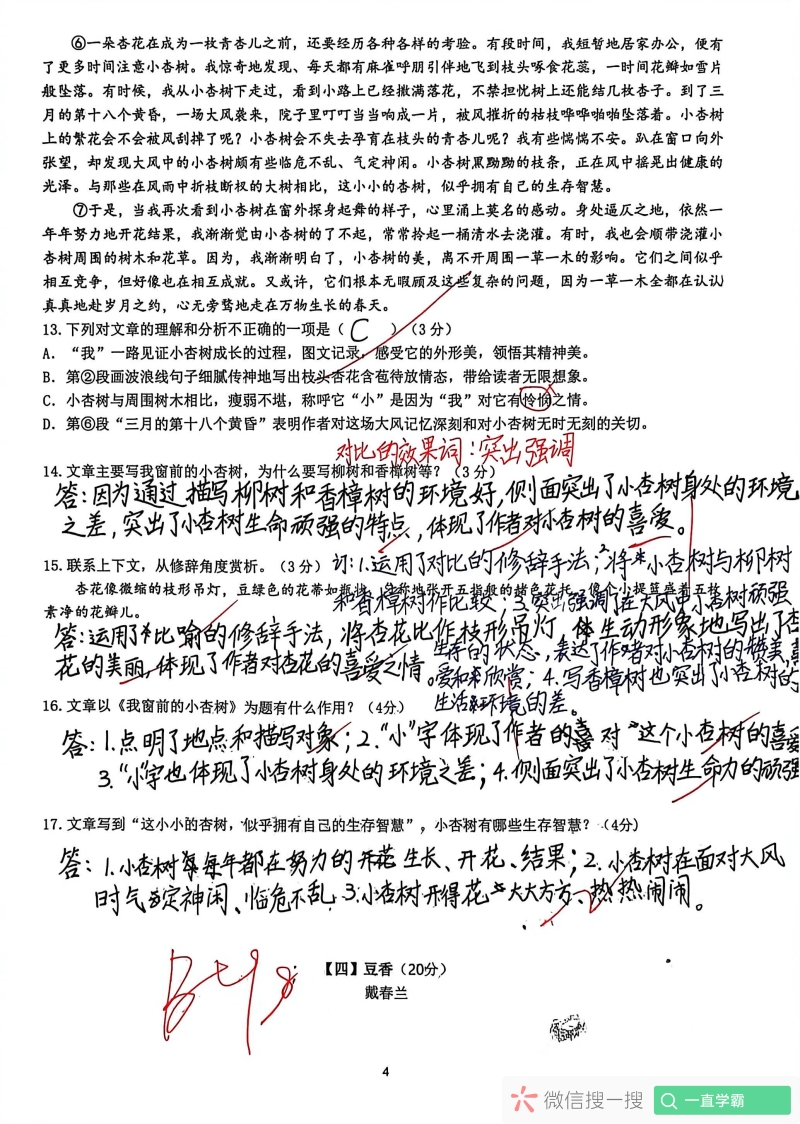 ⑥一朵杏花在成为一枚青杏儿之前，还要经历各种各样的考验。有段时间，我短暂地居家办公，便有
了更多时间注意小杏树。我惊奇地发现、每天都有麻雀呼朋引伴地飞到枝头啄食花蕊，一时间花瓣如雪片
般坠落。有时候，我从小杏树下走过，看到小路上已经撒满落花，不禁担忧树上还能结几枚杏子。到了三
月的第十八个黄昏，一场大风袭来，院子里叮叮当当响成一片，被风摧折的枯枝哗哗啪啪坠落着。小杏树
上的繁花会不会被风刮掉了呢？小杏树会不失去孕育在枝头的青杏儿呢？我有些惴惴不安。趴在窗口向外
张望，却发现大风中的小杏树颇有些临危不乱、气定神闲。小杏树黑黝黝的枝条，正在风中摇晃出健康的
光泽。与那些在风雨中折枝断杈的大树相比，这小小的杏树，似乎拥有自己的生存智慧。
⑦于是，当我再次看到小杏树在窗外探身起舞的样子，心里涌上莫名的感动。身处逼仄之地，依然一
年年努力地开花结果，我渐渐觉由小杏树的了不起，常常拎起一桶清水去浇灌。有时，我也会顺带浇灌小
杏树周围的树木和花草。因为，我渐渐明白了，小杏树的美，离不开周围一草一木的影响。它们之间似乎
相互竞争，但好像也在相互成就。又或许，它们根本无暇顾及这些复杂的问题，因为一草一木全都在认认
真真地赴岁月之约，心无旁骛地走在万物生长的春天。
13. 下列对文章的理解和分析不正确的一项是（ C ）（3 分）
A. “我”一路见证小杏树成长的过程，图文记录，感受它的外形美，领悟其精神美。
B. 第②段画波浪线句子细腻传神地写出枝头杏花含苞待放情态，带给读者无限想象。
C. 小杏树与周围树木相比，瘦弱不堪，称呼它“小”是因为“我”对它有怜悯之情。
D. 第⑥段“三月的第十八个黄昏”表明作者对这场大风记忆深刻和对小杏树无时无刻的关切。
对比的效果词：突出强调
14. 文章主要写我窗前的小杏树，为什么要写柳树和香樟树等？（3 分）
答：因为通过描写柳树和香樟树的环境好，侧面突出了小杏树身处的环境
之差，突出了小杏树生命顽强的特点，体现了作者对小杏树的喜爱。
15. 联系上下文，从修辞角度赏析。（3 分）
订：1.运用了对比的修辞手法；2.将小杏树与柳树
杏花像微缩的枝形吊灯，豆绿色的花蒂如瓶
和香樟树作比较；3.突出强调了在大风中小杏树顽强
素净的花瓣儿。
答：运用了比喻的修辞手法，将杏花比作枝形吊灯，生动形象地写出了杏
生存的状态，表达了作者对小杏树的赞美，喜
花的美丽，体现了作者对杏花的喜爱之情。
爱和欣赏；4.写香樟树也突出了小杏树的
生活环境的差。
16. 文章以《我窗前的小杏树》为题有什么作用？（4分）
答：1.点明了地点和描写对象；2.“小”字体现了作者的对这个小杏树的喜爱
3.“小”字也体现了小杏树身处的环境之差；4.侧面突出了小杏树生命力的顽强
17. 文章写到“这小小的杏树，似乎拥有自己的生存智慧”，小杏树有哪些生存智慧？（4分）
答：1.小杏树每年都在努力的生长、开花、结果；2.小杏树在面对大风
时气定神闲、临危不乱 3.小杏树开得花大大方方、热热闹闹。
【四】豆香（20分）
戴春兰
4
微信搜一搜
一直学霸